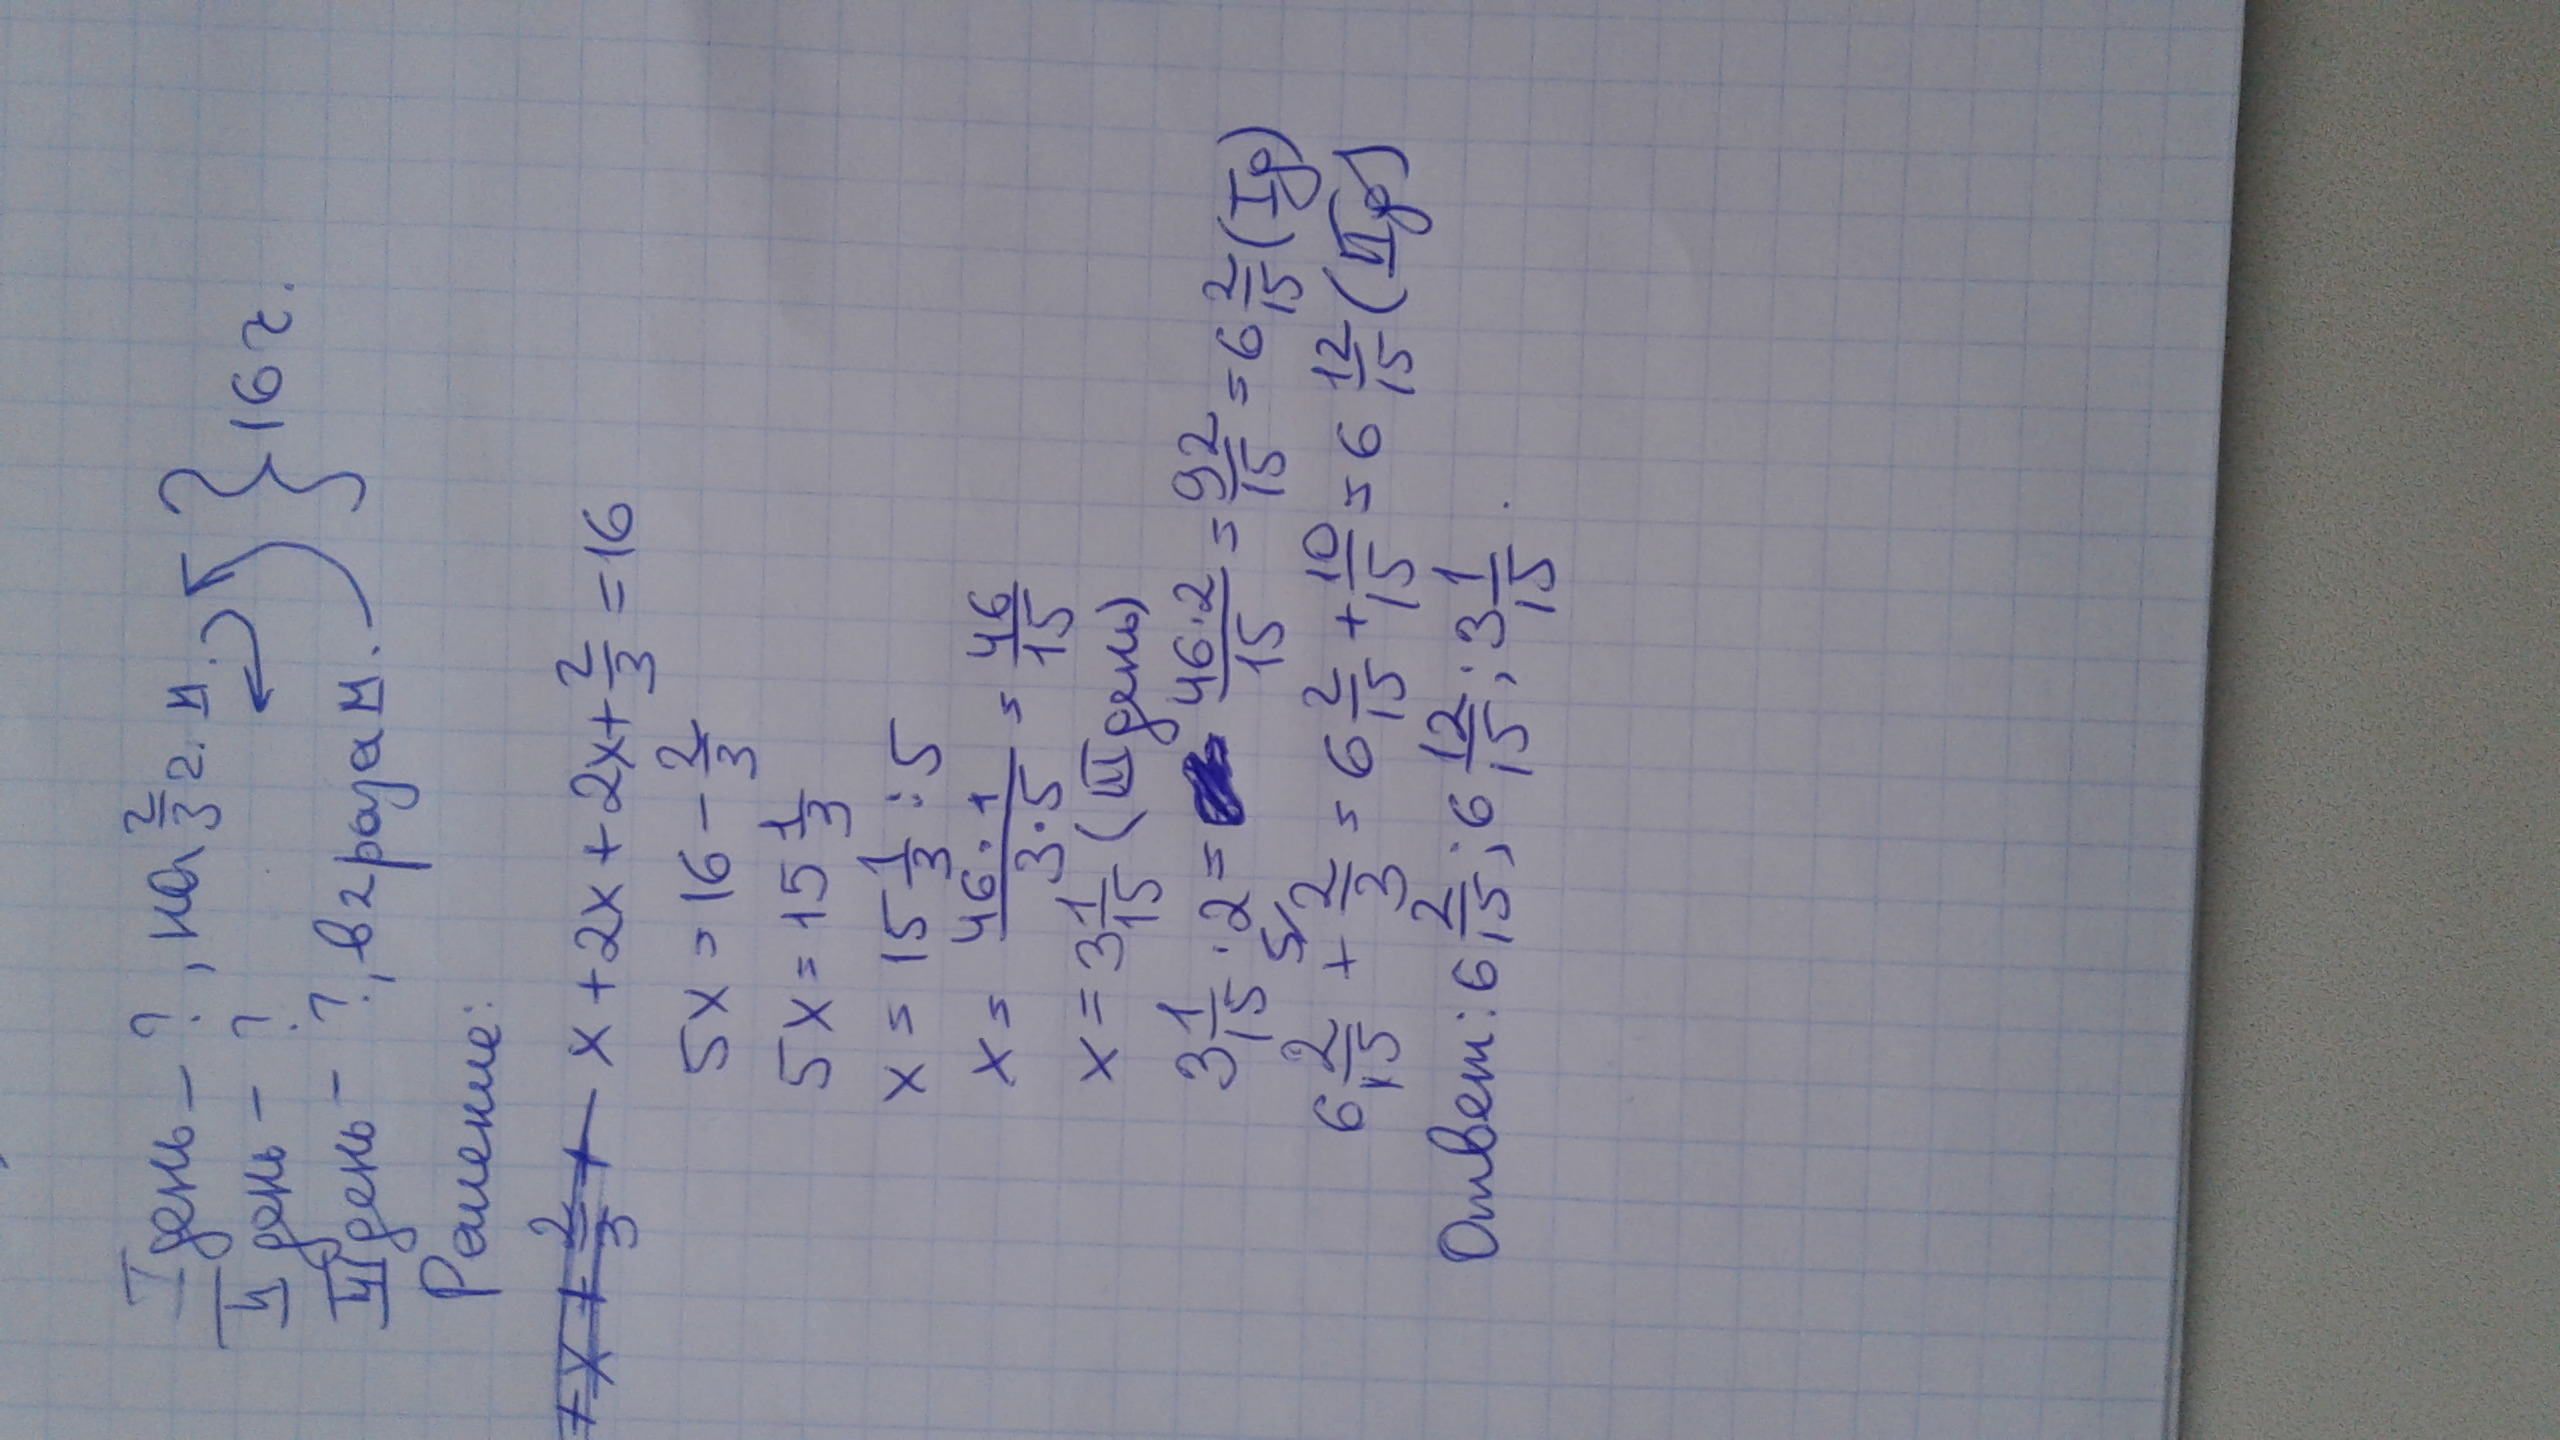 I день - ?, на 2/3 г. м.
II день - ?
III день - ?, в 2 раза м. } 16 г.
Решение:
x + 2x + 2x + 2/3 = 16
5x = 16 - 2/3
5x = 15 1/3
x = 15 1/3 : 5
x = 46·1/3·5 = 46/15
x = 3 1/15 (III день)
3 1/15 · 2 = 46·2/15 = 92/15 = 6 2/15 (I д)
6 2/15 + 2/3 = 6 2/15 + 10/15 = 6 12/15 (II д)
Ответ: 6 2/15; 6 12/15; 3 1/15.